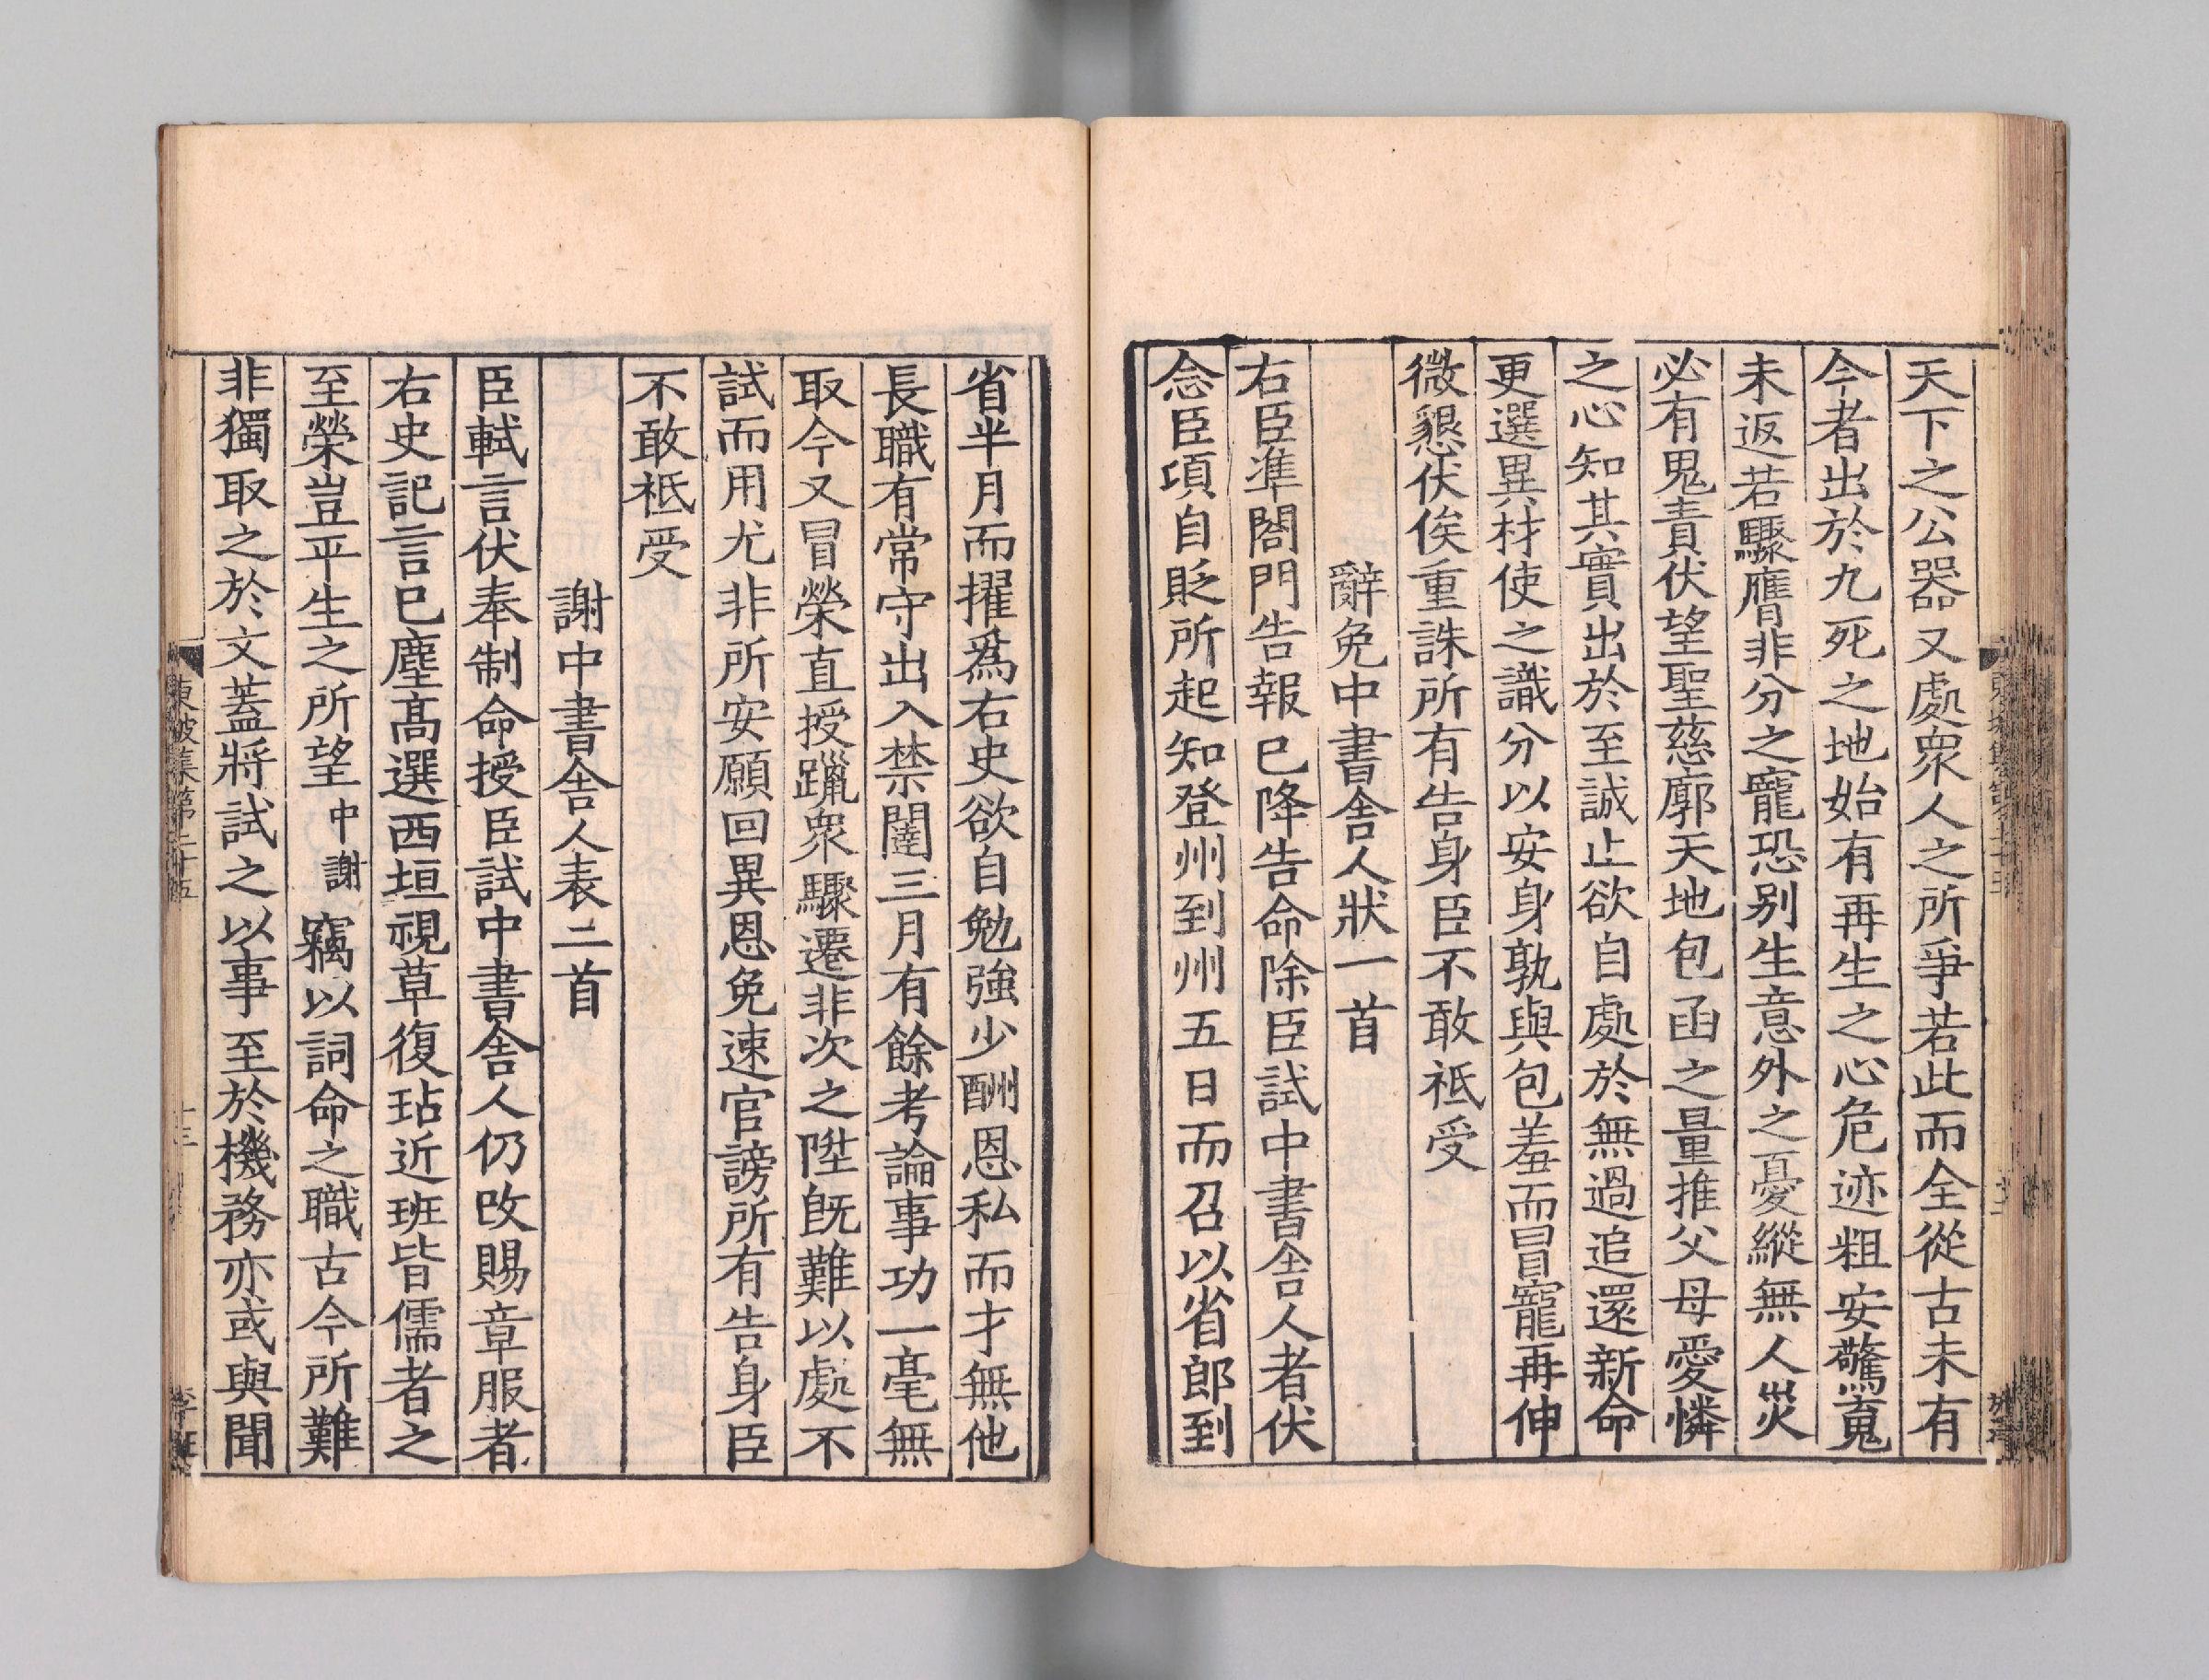 天下之公器又處衆人之所爭若此而全從古未有
今者出於九死之地始有再生之心危迹粗安驚䰟
未返若驟膺非分之寵恐别生意外之憂縱無人災
必有鬼責伏望聖慈廓天地包函之量推父母愛憐
之心知其實出於至誠止欲自處於無過追還新命
更選異材使之識分以安身孰與包羞而冒寵再伸
微懇伏俟重誅所有告身臣不敢祗受
辭免中書舍人狀一首
右臣準閤門告報已降告命除臣試中書舍人者伏
念臣頃自貶所起知登州到州五日而召以省郎到
省半月而擢爲右史欲自勉強少酬恩私而才無他
長職有常守出入禁闥三月有餘考論事功一毫無
取今又冒榮直授躐衆驟遷非次之陞旣難以處不
試而用尤非所安願回異恩免速官謗所有告身臣
不敢祗受
謝中書舍人表二首
臣軾言伏奉制命授臣試中書舍人仍改賜章服者
右史記言已塵髙選西垣視草復玷近班皆儒者之
至榮豈平生之所望中謝竊以詞命之職古今所難
非獨取之於文蓋將試之以事至於機務亦或與聞
東坡集第二十五
十三